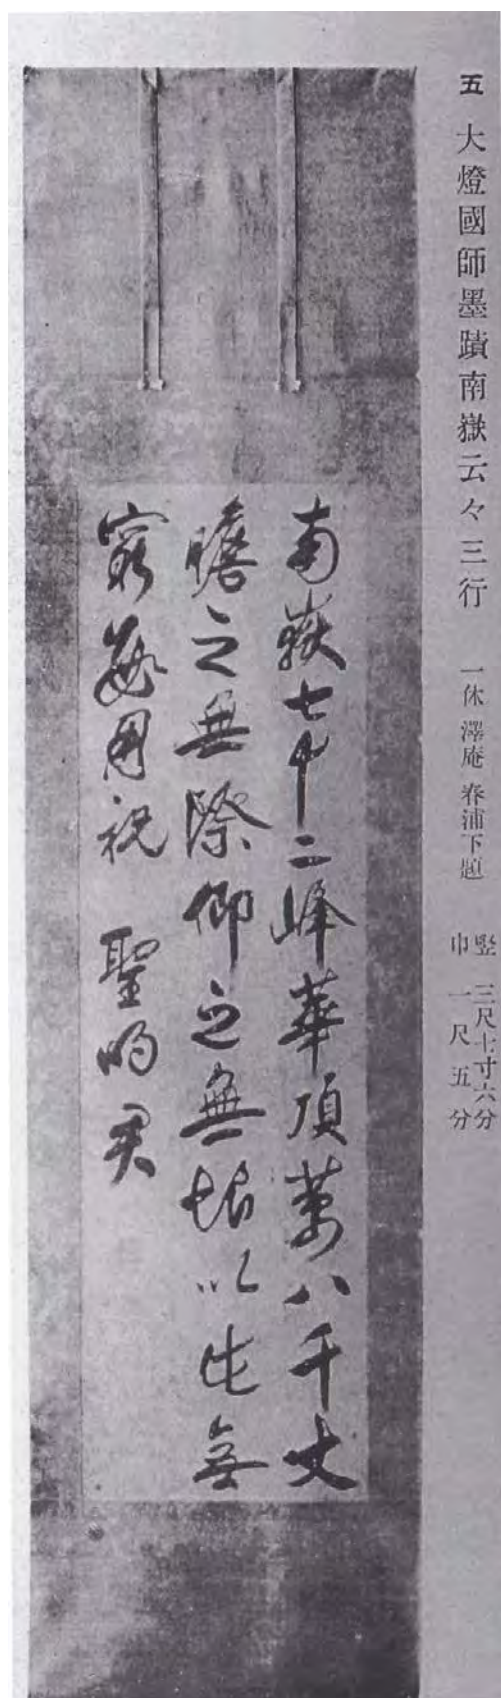 五 大燈國師墨蹟南嶽云々三行 一休 澤庵 春浦下題 竪 三尺七寸六分
巾 一尺五分
南嶽七十二峰華頂萬八千丈
瞻之無際仰之無垠以此無
窮數用祝 聖明君